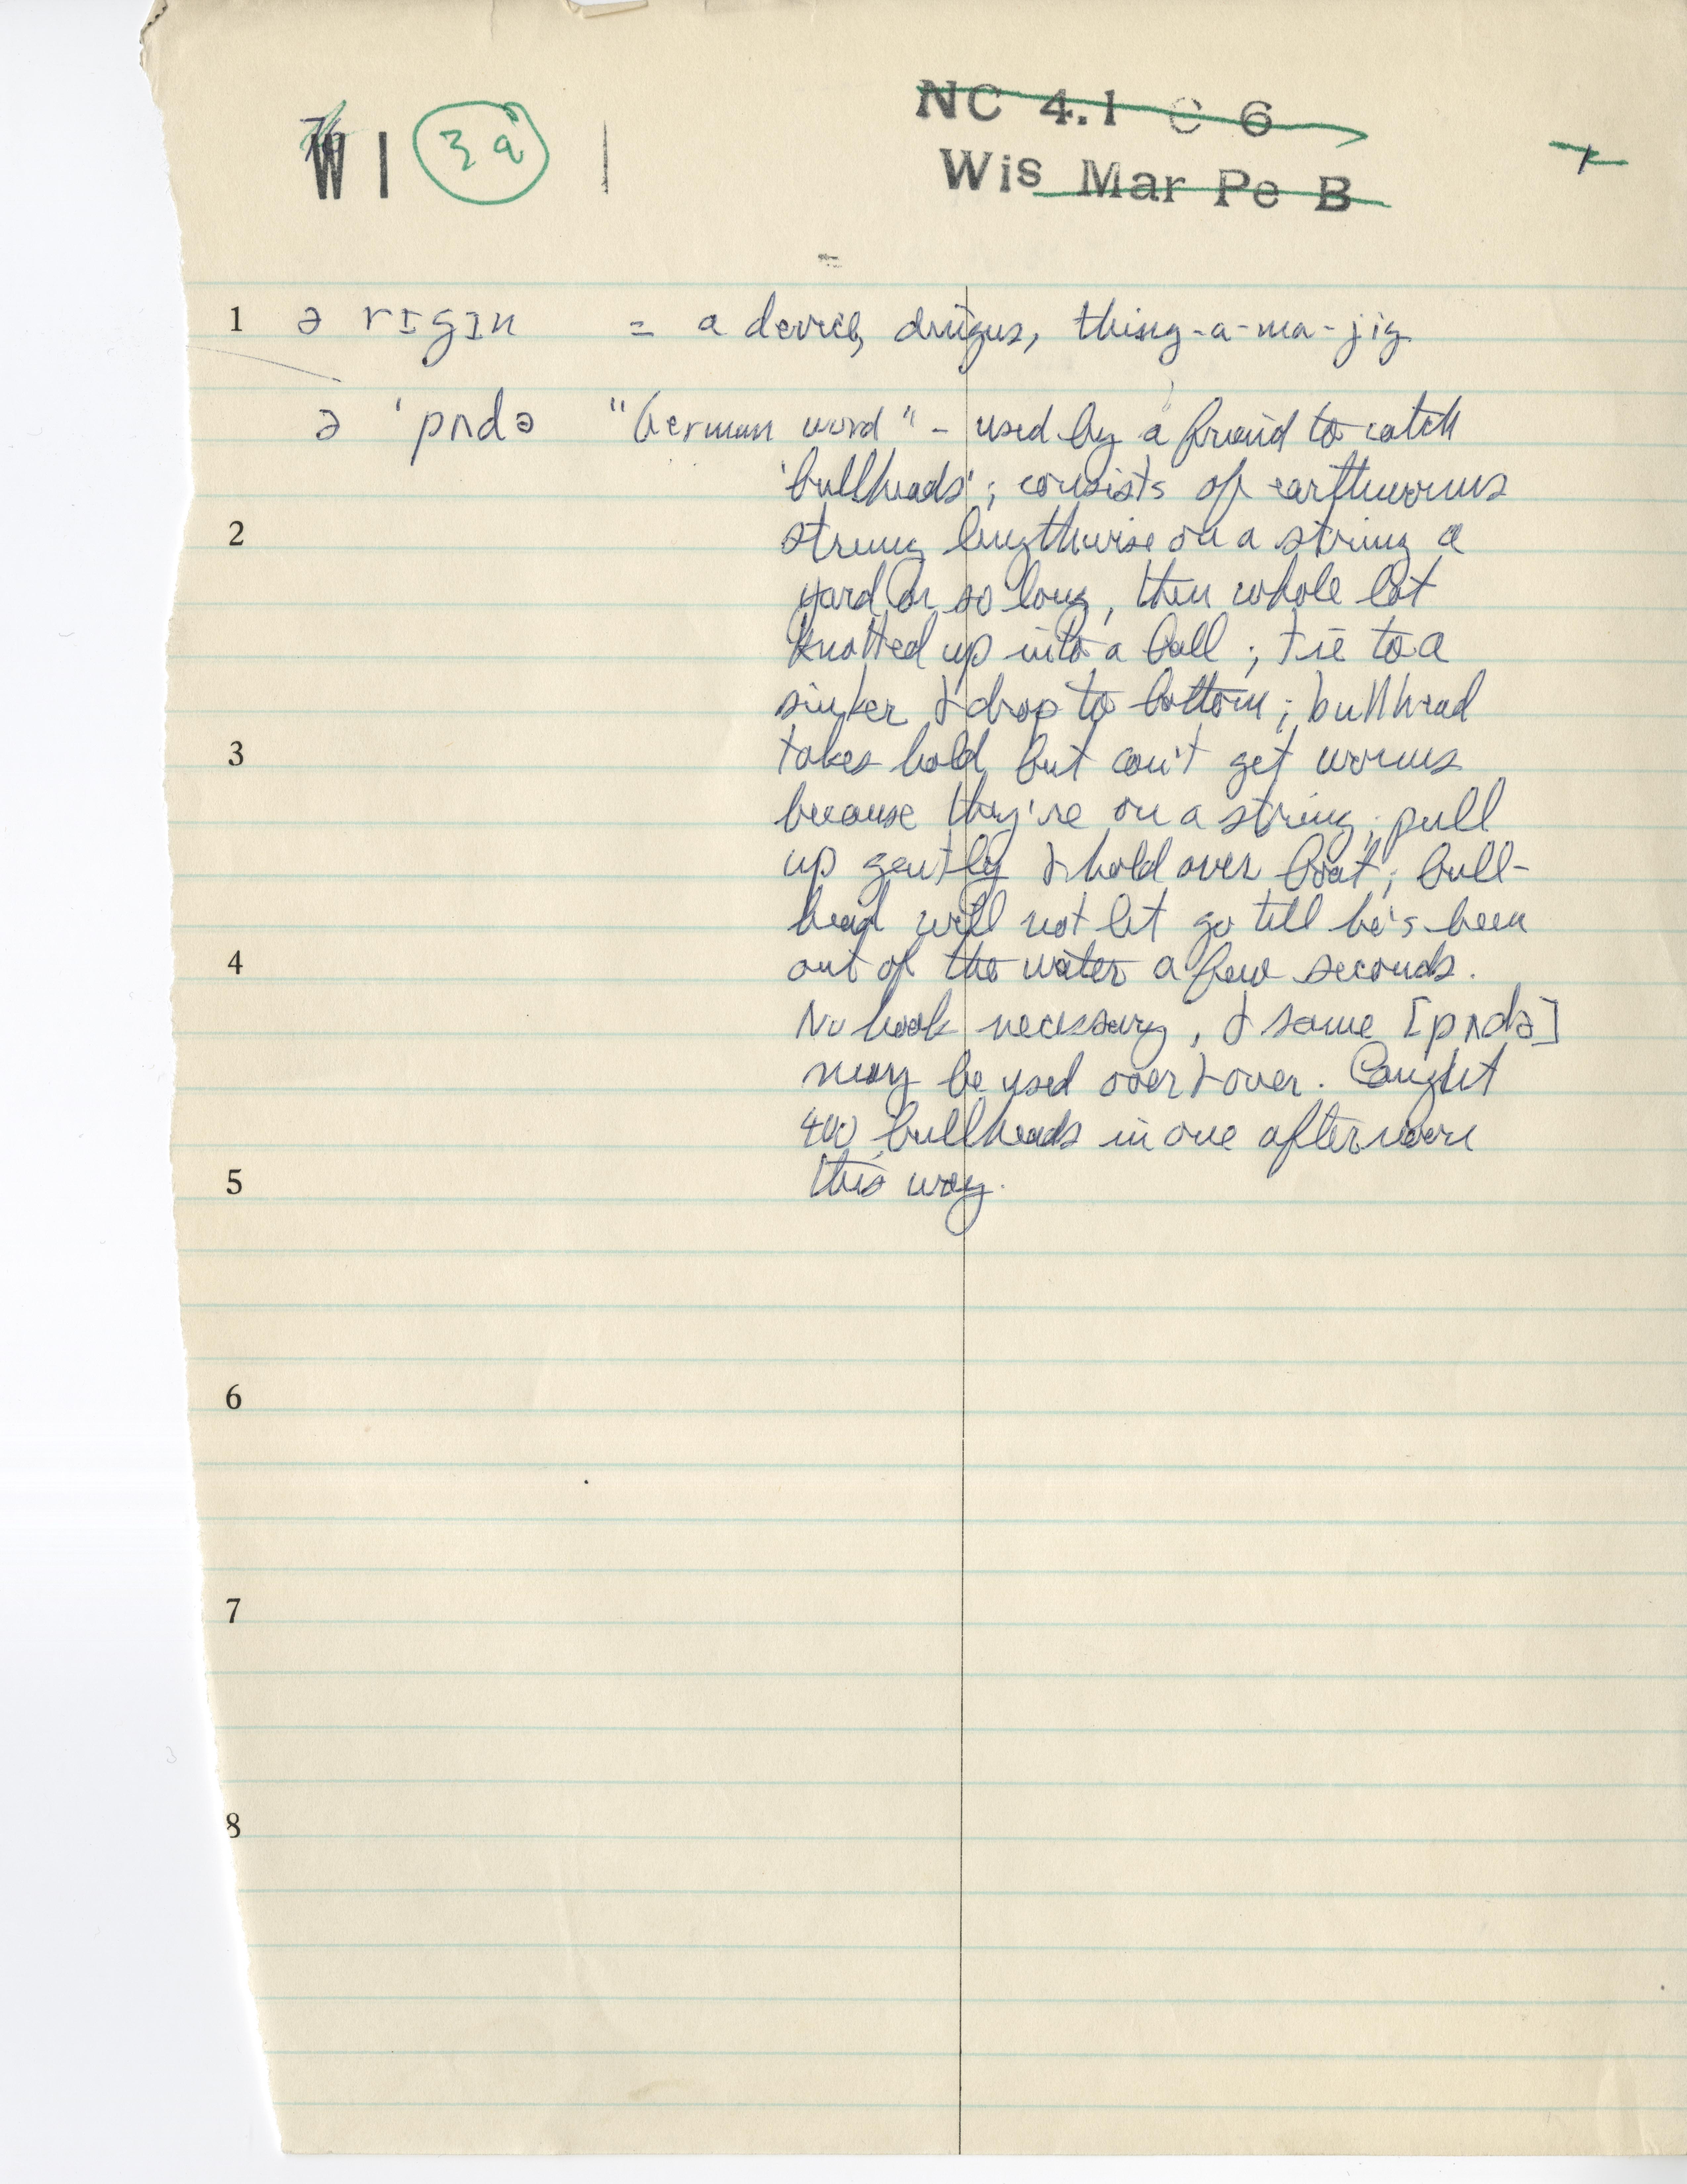 NC 4.1 C 6
W I 3a I
Wis Mar Pe B
1 ə rɪgɪn = a device, dingus, thing-a-ma-jig
ə 'pʌdə "German word" - used by a friend to catch
'bullheads'; consists of earthworms
2 strung lengthwise on a string a
yard or so long, then whole lot
knotted up into a ball; tie to a
sinker & drop to bottom; bullhead
3 takes hold but can't get worms
because they're on a string; pull
up gently & hold over boat; bull-
head will not let go till he's been
4 out of the water a few seconds.
No hook necessary, & same [pʌdə]
may be used over & over. Caught
400 bullheads in one afternoon
5 this way.
6
7
8